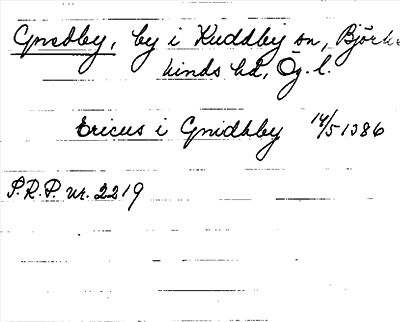 Gnedby, by i Kuddby sn, Björke
kinds hd, Ög. l.
Ericus i Gnidhby 14/5 1386
S.R.P. nr. 2219